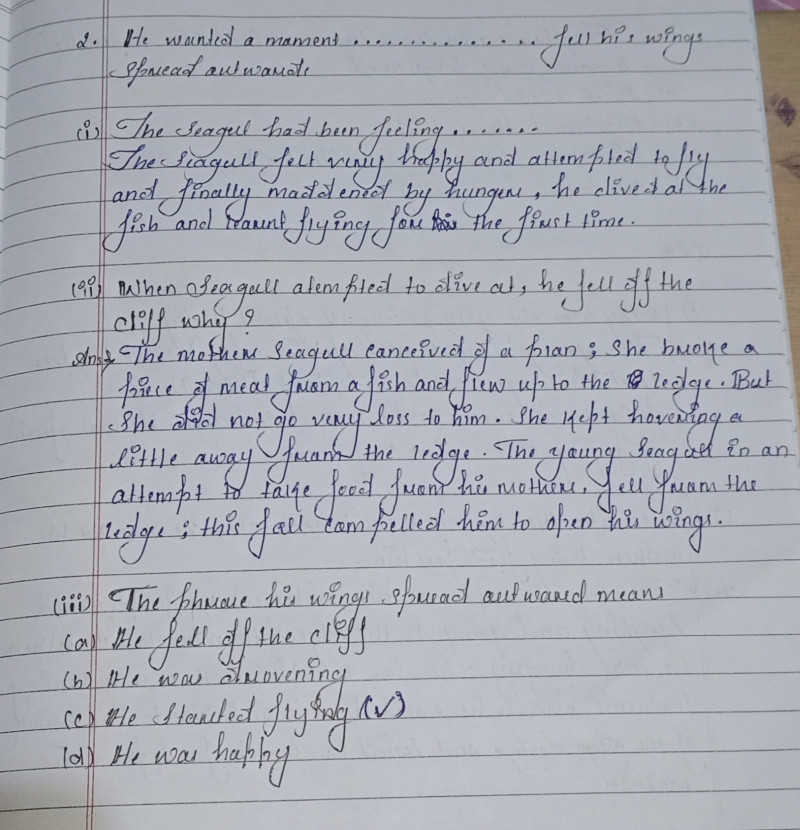 2. He wanted a mament .............. fell his wings
Spread autwards
(i) The seagul had been feeling.......
The Seagull felt very happy and attempted to fly
and finally maddened by hunger, he dived at the
fish and learnt flying for the first time.
(ii) When Seagull atempted to dive at, he fell off the
cliff why?
Ans→ The mother Seagull canceived of a plan; she broke a
piece of meat fram a fish and flew up to the ledge. But
She did not go very loss to him. She kept hovering a
little away fram the ledge. The young Seagull in an
attempt to take food fram his mother, fell fram the
ledge; this fall campelled him to open his wings.
(iii) The phrase his wings spread autward means
(a) He fell off the cliff
(b) He was
(c) He started flying (✓)
(d) He was happy